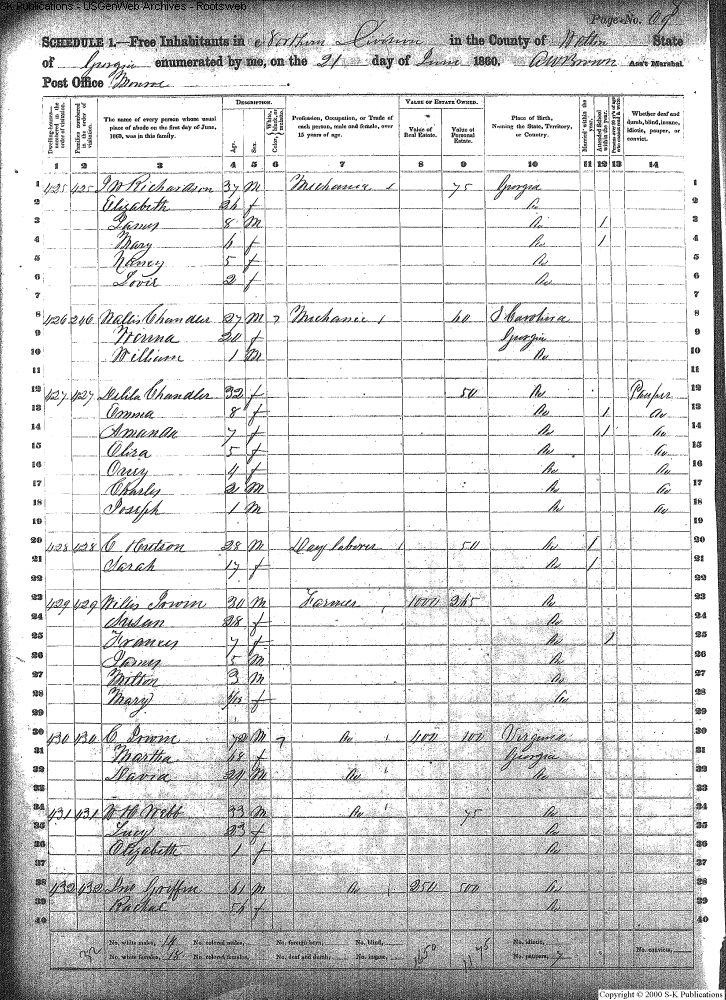 S-K Publications - USGenWeb Archives - Rootsweb
Page No.
SCHEDULE 1.—Free Inhabitants in Northern Division in the County of State
of Georgia enumerated by me, on the 21 day of June 1860. Ass't Marshal.
Post Office Monroe
Dwelling-houses—numbered in the order of visitation.
Families numbered in the order of visitation.
The name of every person whose usual place of abode on the first day of June, 1860, was in this family.
DESCRIPTION.
Age.
Sex.
Color, White, black, or mulatto.
Profession, Occupation, or Trade of each person, male and female, over 15 years of age.
VALUE OF ESTATE OWNED.
Value of Real Estate.
Value of Personal Estate.
Place of Birth, Naming the State, Territory, or Country.
Married within the year.
Attended School within the year.
Whether deaf and dumb, blind, insane, idiotic, pauper, or convict.
1 2 3 4 5 6 7 8 9 10 11 12 13 14
1 425 425 J W Richardson 37 M Mechanic 75 Georgia 1
2 Elizabeth 26 f Do 2
3 James 8 M Do 1 3
4 Mary 6 f Do 1 4
5 Nancy 5 f Do 5
6 2 f Do 6
7 7
8 426 246 Chandler 27 M 7 Mechanic 60 S Carolina 8
9 20 f Georgia 9
10 William 1 M Do 10
11 11
12 427 427 Delila Chandler 32 f 50 Do Pauper 12
13 Emma 8 f Do 1 Do 13
14 Amanda 7 f Do 1 Do 14
15 Eliza 5 f Do Do 15
16 4 f Do Do 16
17 Charles 2 M Do Do 17
18 Joseph 1 M Do Do 18
19 19
20 428 428 C Hutson 28 M Day laborer 50 Do 1 20
21 Sarah 17 f Do 1 21
22 22
23 429 429 Wiley Irwin 30 M Farmer 1000 265 Do 23
24 Susan 28 f Do 24
25 Frances 7 f Do 1 25
26 James 5 M Do 26
27 Milton 3 M Do 27
28 Mary f Do 28
29 29
30 430 430 C Irwin 72 M 7 Do 400 100 Virginia 30
31 Martha 68 f Georgia 31
32 David 24 M Do Do 32
33 33
34 431 431 W H Webb 33 M Do 75 Do 34
35 Lucy 23 f Do 35
36 Elizabeth 1 f Do 36
37 37
38 432 432 Jno Griffin 61 M Do 250 500 Do 38
39 Rachal 56 f Do 39
40 40
32 No. white males, 14 No. colored males, No. foreign born, No. blind, 1650 1175 No. idiotic, No. convicts,
No. white females, 18 No. colored females, No. deaf and dumb, No. insane, No. paupers, 7
Copyright © 2000 S-K Publications